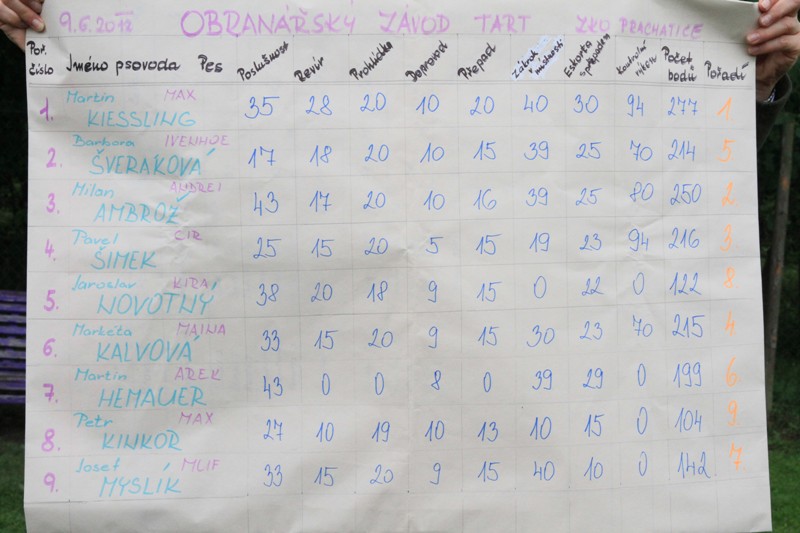 9.6.2012 OBRANÁŘSKÝ ZÁVOD TART ZKO PRACHATICE
Poř. číslo Jméno psovoda Pes Poslušnost Revír Prohlídka Doprovod Přepad Zákrok Eskorta s přepadem Kontrolní výkon Počet bodů Pořadí
1. Martin KIESSLING MAX 35 28 20 10 20 40 30 94 277 1
2. Barbora ŠVERÁKOVÁ IVENHOE 17 18 20 10 15 39 25 70 214 5
3. Milan AMBROŽ ANDREI 43 17 20 10 16 39 25 80 250 2
4. Pavel ŠIMEK CIR 25 15 20 5 15 19 23 94 216 3
5. Jaroslav NOVOTNÝ KIRA 38 20 18 9 15 0 22 0 122 8
6. Markéta KALVOVÁ MAINA 33 15 20 9 15 30 23 70 215 4
7. Martin HEMAUER AREK 43 0 0 8 0 39 29 0 199 6
8. Petr KINKOR MAX 27 10 19 10 13 10 15 0 104 9
9. Josef MYSLÍK MUF 33 15 20 9 15 40 10 0 142 7